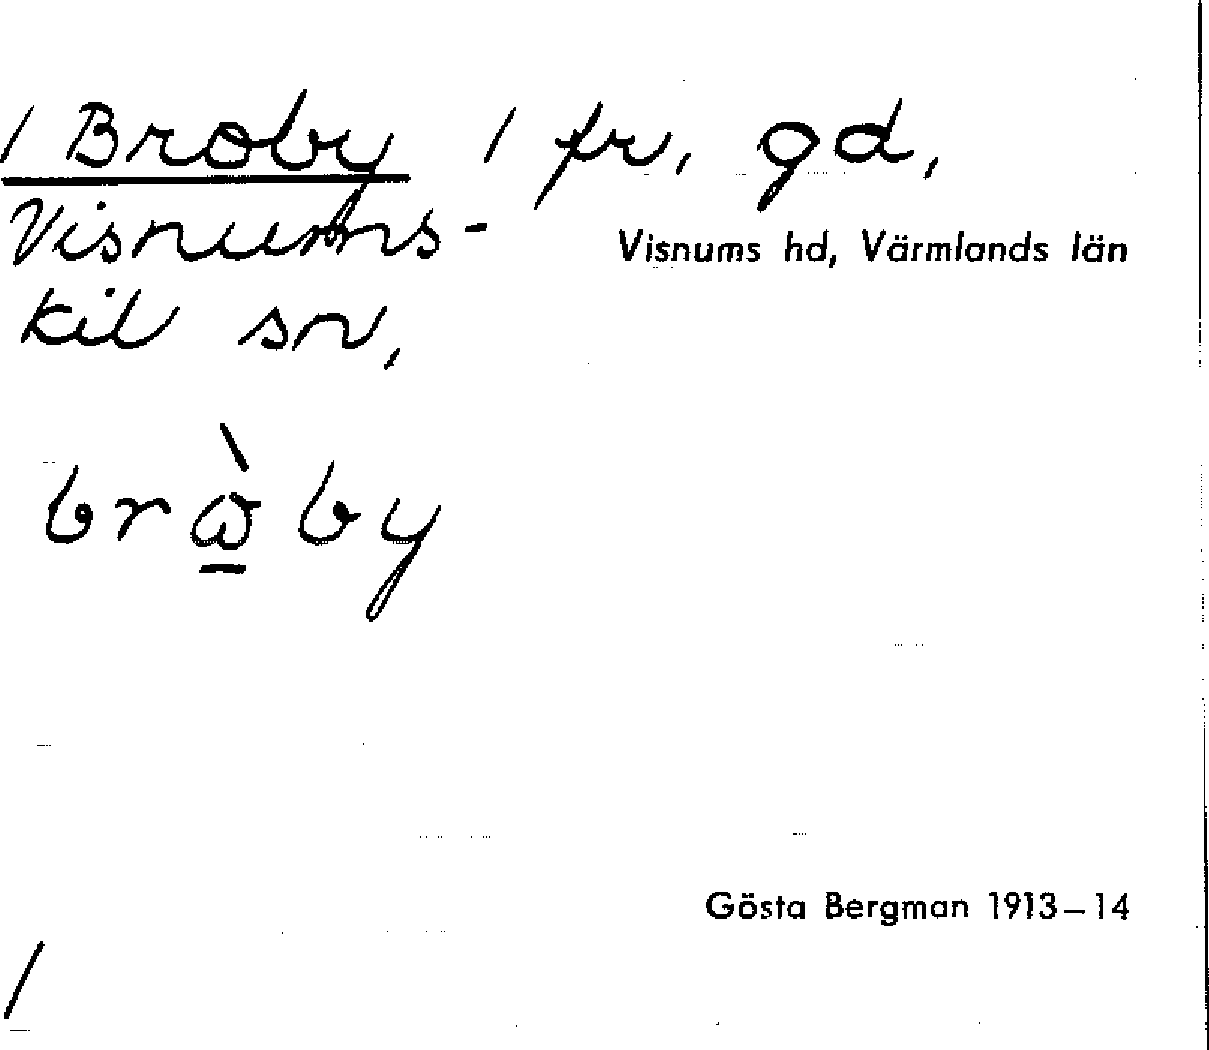 / Broby / fr, gd,
Visnums-
Visnums hd, Värmlands län
kil sn,
brὼby
Gösta Bergman 1913–14
/